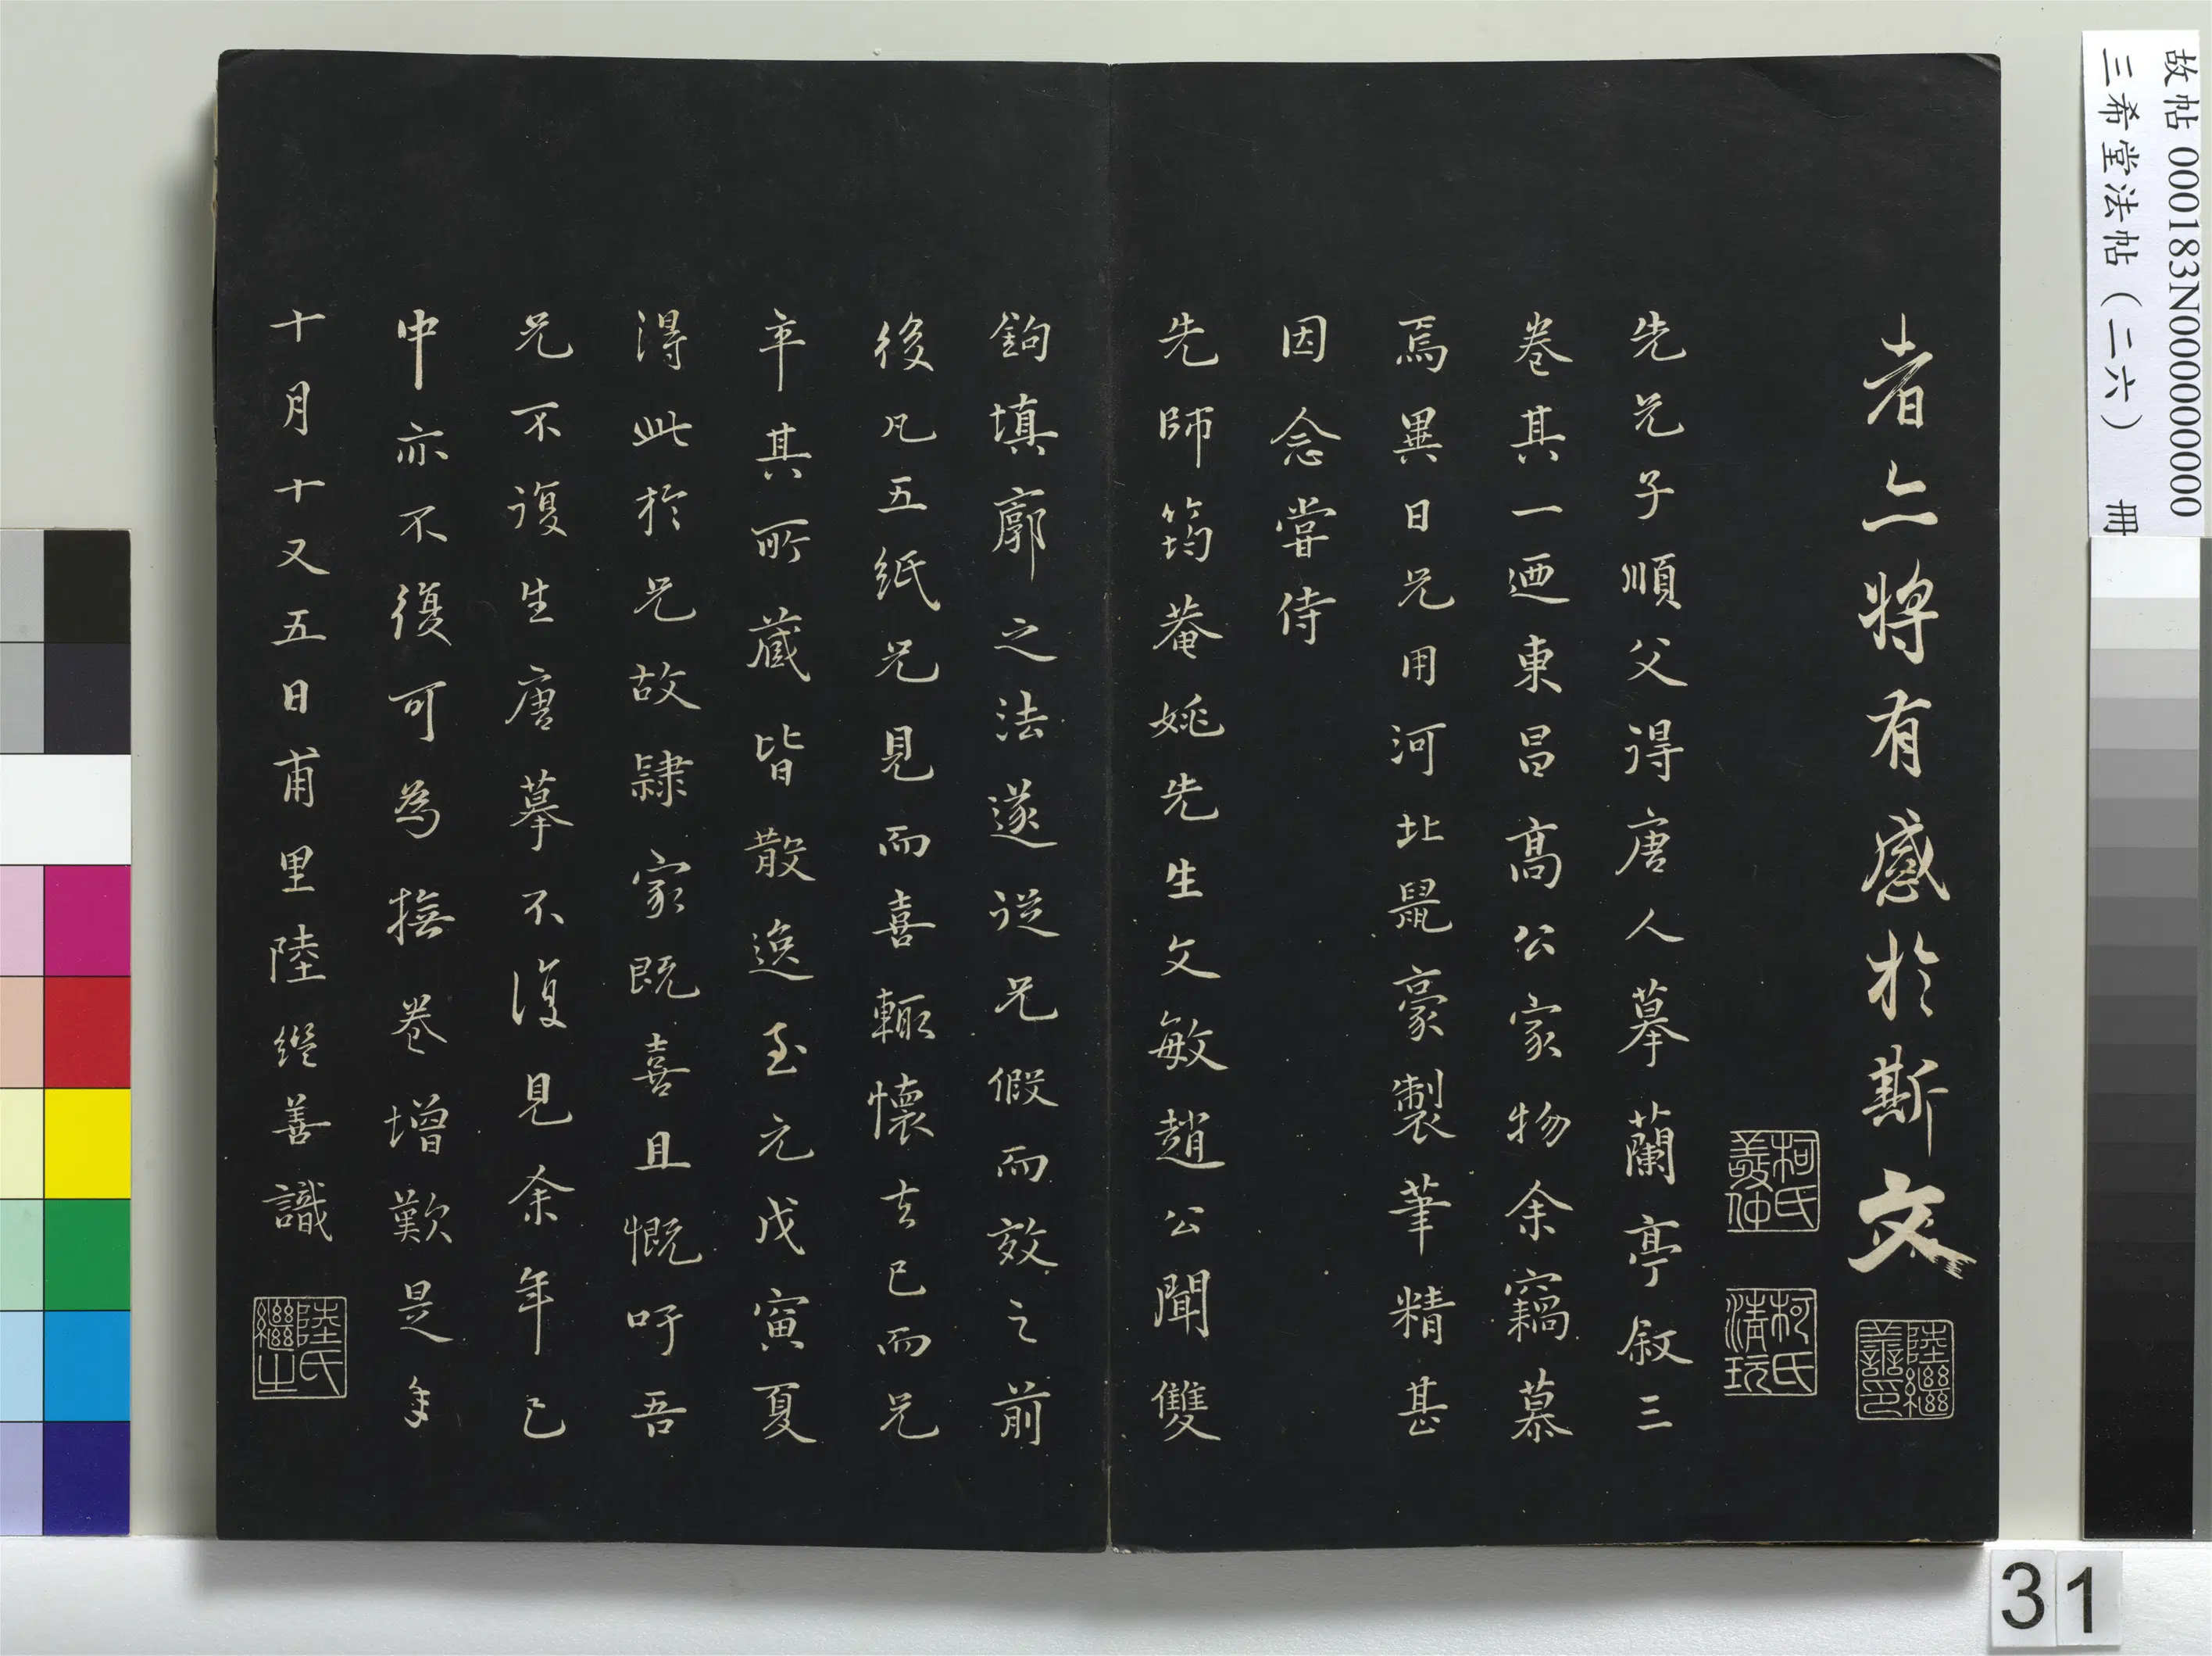 者亦將有感於斯文
陸繼善印
柯氏敬仲
柯氏清玩
先兄子順父得唐人摹蘭亭叙三
卷其一迺東昌高公家物余竊慕
焉異日兄用河北鼠豪製筆精甚
因念嘗侍
先師筠菴姚先生文敏趙公聞雙
鉤填廓之法遂從兄假而效之前
後凡五紙兄見而喜輙懷去已而兄
卒其所藏皆散逸至元戊寅夏
得此於兄故隸家既喜且慨吁吾
兄不復生唐摹不復見余年已
中亦不復可為撫卷增歎是年
十月十又五日甫里陸繼善識
陸氏繼之
故帖 000183N000000000
三希堂法帖（二六） 冊
31